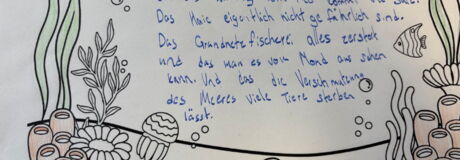 Das Haie eigentlich nicht gefährlich sind.
Das Grundnetzfischerei alles zerstört
und das man es vom Mond aus sehen
kann. Und das die Verschmutzung
des Meeres viele Tiere sterben
lässt.